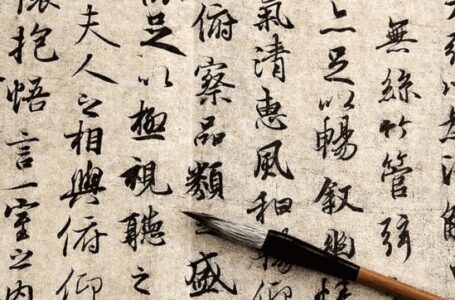 以為流
無絲竹管弦
亦足以暢敘幽情
氣清惠風和暢仰
俯察品類之盛
足以極視聽之
夫人之相與俯仰
懷抱悟言一室之內